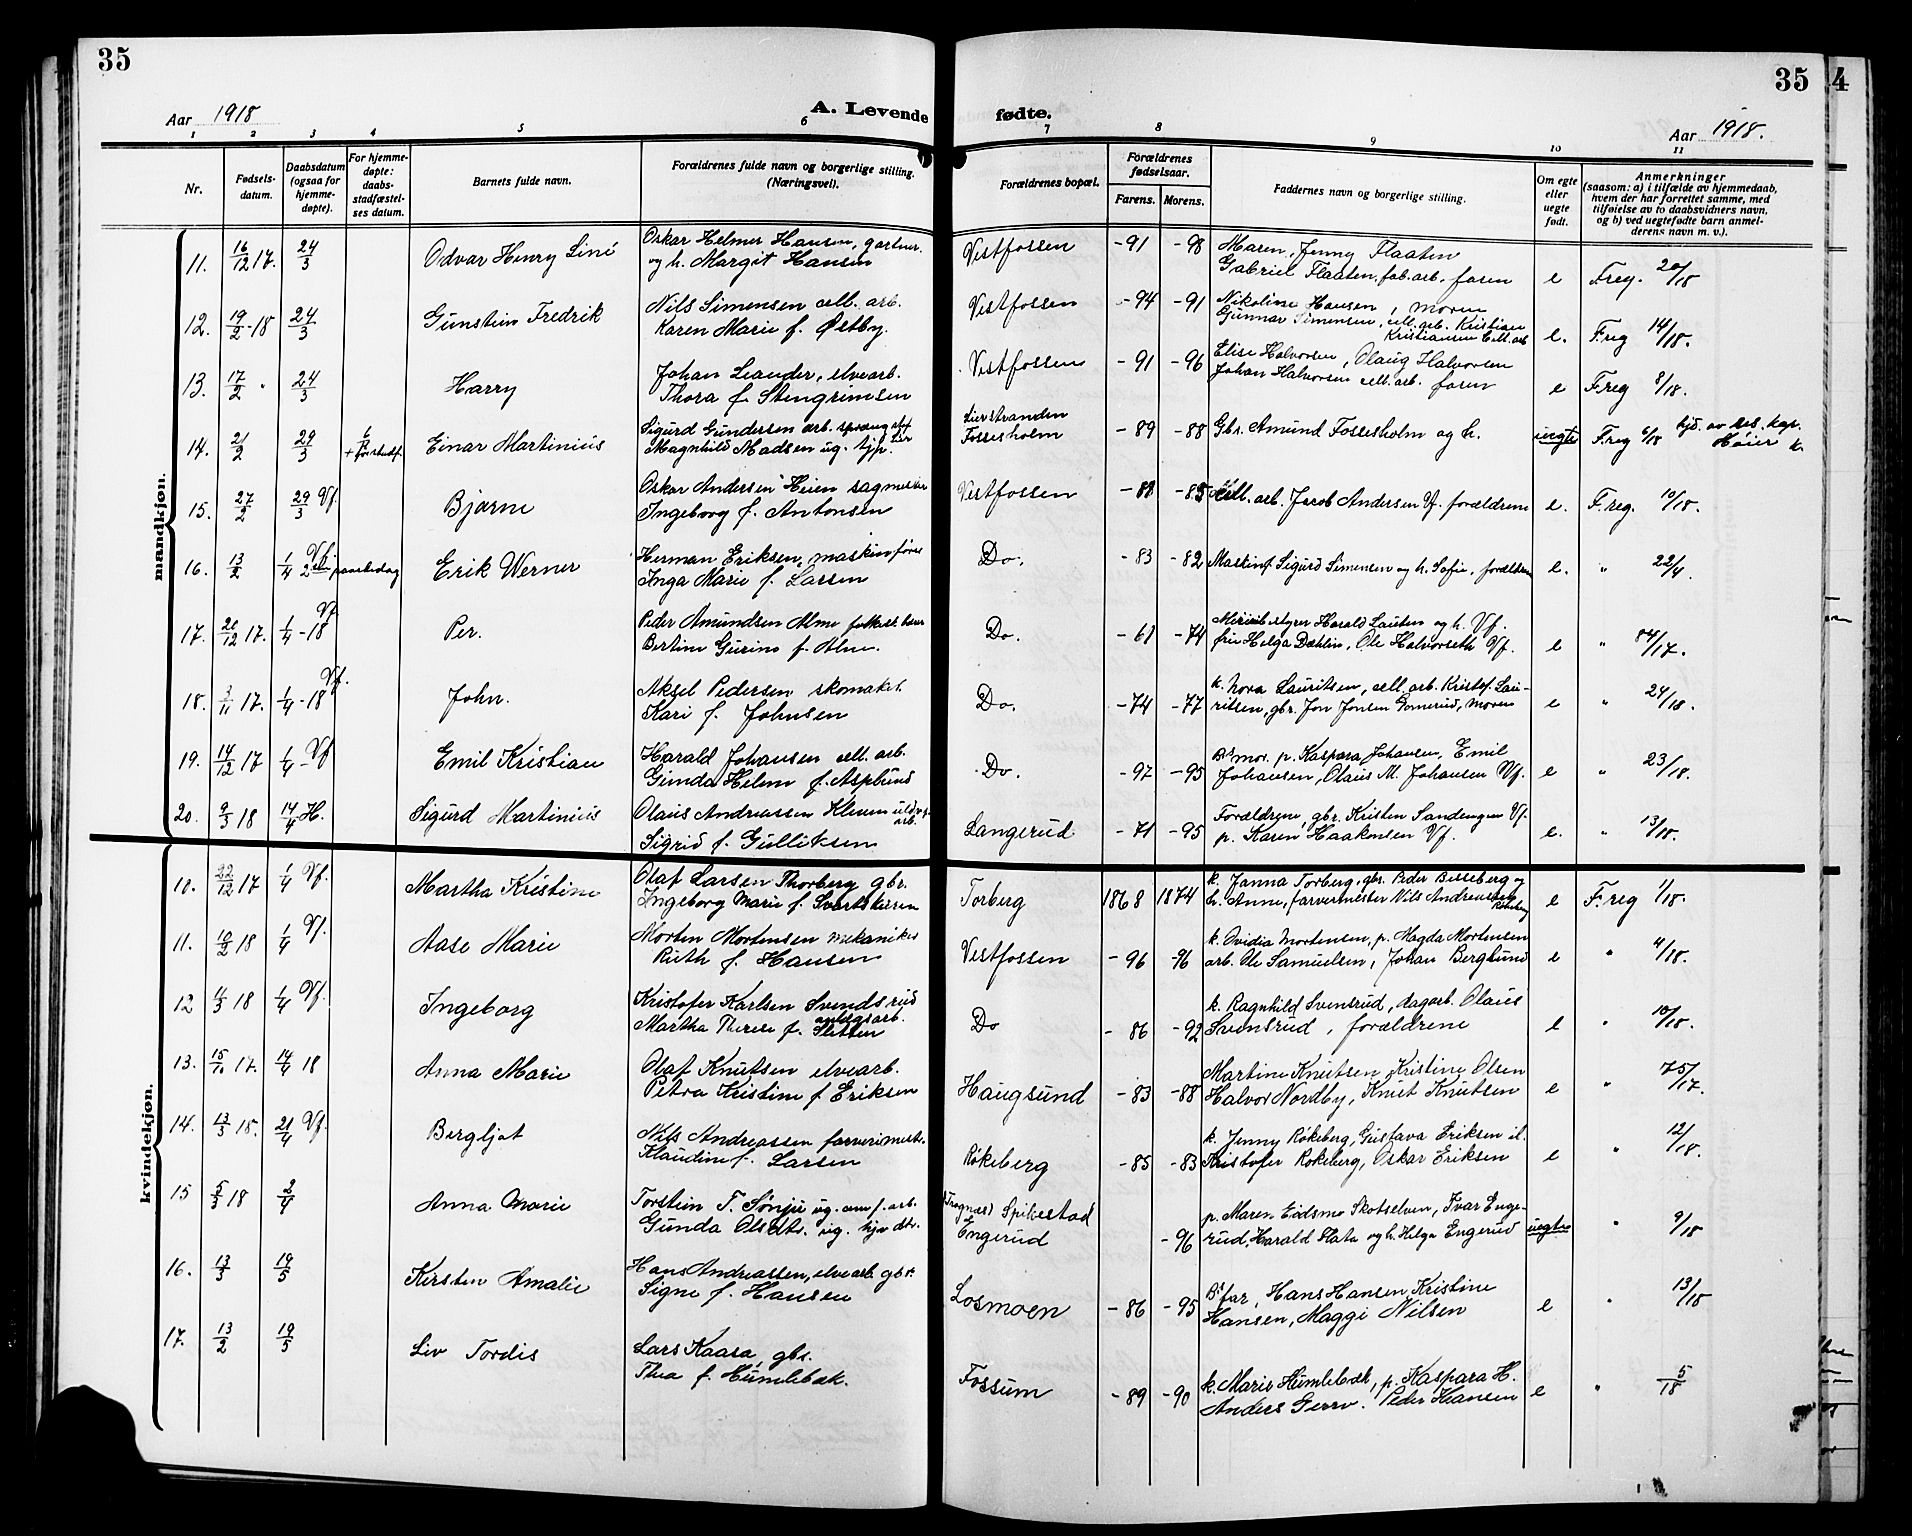 35
35
4
Aar 1918
A. Levende
fødte.
Aar 1918.
1 2 3 4 5 6 7 8 9 10 11
Nr.
Fødsels-
datum.
Daabsdatum
(ogsaa for
hjemme-
døpte).
For hjemme-
døpte:
daabs-
stadfæstel-
ses datum.
Barnets fulde navn.
Forældrenes fulde navn og borgerlige stilling.
(Næringsvei).
Forældrenes bopæl.
Forældrenes
fødselsaar.
Farens. Morens.
Faddernes navn og borgerlige stilling.
Om egte
eller
uegte
født.
Anmerkninger
(saasom: a) i tilfælde av hjemmedaab,
hvem der har forrettet samme, med
tilføielse av to daabsvidners navn,
og b) ved uegtefødte barn anmel-
derens navn m. v.).
mandkjøn.
11. 16/12 17. 24/3 Odvar Henry Linè Oskar Helmer Hansen, gartner. Vestfossen -91 -98 Maren, Jenny Flaaten
og h. Margit Hansen Gabriel Flaaten, fab. arb. faren e Freg. 20/18
12. 19/2 -18 24/3 Gunstein Fredrik Nils Simensen cell. arb. Vestfossen -94 -91 Nikoline Hansen, moren
Karen Marie f. Østby. Gunnar Simensen, cell. arb. Kristian
Kristiansen Cell. arb e. Freg 14/18.
13. 17/2 " 24/3 Harry Johan Leander, elvearb. Vestfossen -91 -96 Elise Halvorsen, Olaug Halvorsen
Thora f. Stengrimsen Johan Halvorsen cell. arb. faren e Freg 8/18.
14. 21/2 29/3 Einar Martinius Sigurd Gundersen arb. Lierstranden
Magnhild Madsen ug. tjp. Fossesholm -89 -88 Gbr. Amund Fossesholm og h. uegte Freg 6/18 hjd. av res. kap.
Høier k.
15. 27/2 29/3 Vf. Bjarne Oskar Andersen Heien sagmester Vestfossen -88 -85 Cell. arb. Jacob Andersen Vf. forældrene e. Freg. 10/18.
Ingeborg f. Antonsen
16. 13/2 1/4 Vf. 2den paaskedag Erik Werner Herman Eriksen, maskinfører Do. -83 -82 Maskinf. Sigurd Simensen og h. Sofie, forældrene e. " 22/4.
Inga Marie f. Larsen
17. 20/12 17. 1/4 -18 Vf. Per. Peder Amundsen Alme Do. -61 -74 Harald Lauten og h. Vf.
Bertine Gurine f. Alme. fru Helga Dæhlin, Ole Halvorseth Vf. e " 84/17.
18. 3/11 17. 1/4 -18 Vf. John. Aksel Pedersen skomaker Do. -74 -77 k. Nora Lauritsen, cell. arb. Kristof. Lau-
Kari f. Johnsen ritsen, gbr. Jon Jonsen Gomerud, moren e " 24/18.
19. 14/12 17 1/4 - Vf Emil Kristian Harald Johansen cell. arb. Do. -97 -95 Bs mor. p. Kaspara Johansen, Emil
Gunda Helene f. Asplund Johansen, Olaus M. Johansen Vf. e " 23/18.
20. 9/3 18 14/4 H. Sigurd Martinius Olaus Andreassen Kleven uldv. arb. Langerud -71 -95 Forældrene, gbr. Kristen Sandengen Vf.
Sigrid f. Gulliksen p. Karen Haakonsen Vf. e. " 13/18.
kvindekjøn.
10. 22/12 17 1/4 Vf. Martha Kristine Olaf Larsen Thorberg gbr. Torberg 1868 1874 k. Janna Torberg, gbr. Peder Besseberg og
Ingeborg Marie f. h. Anne, farvermester Nils Andreassen
Røkeberg e Freg 1/18.
11. 10/2 18 1/4 Vf. Aase Marie Morten Mortensen mekaniker Vestfossen -96 -96 k. Ovidia Mortensen, p. Magda Mortensen
Ruth f. Hansen arb. Ole Samuelsen, Johan Berglund e " 4/18.
12 11/3 18 1/4 Vf. Ingeborg Kristofer Karlsen Svendsrud anlægsarb. Do -86 -92 k. Ragnhild Svensrud, dagarb. Olaus
Martha Therese f. Sletten Svensrud, forældrene e " 10/18.
13. 15/10 17. 14/4 18 Anna Marie Olaf Knutsen elvearb. Haugsund -83 -88 Martine Knutsen, Kristine Olsen
Petra Kristine f. Eriksen Halvor Nordby, Knut Knutsen e " 75/17.
14. 13/3 18. 21/4 Vf. Bergljot Nils Andreassen farverimester Røkeberg -85 -83 k. Jenny Røkeberg, Gustava Eriksen
Klaudine f. Larsen Kristofer Røkeberg, Oskar Eriksen e " 12/18.
15 5/3 18 2/4 Anna Marie Torstein T. Sønju ug. (Tragnæs) Spikestad
Gunda Olsdtr. ug. Engerud -96 p. Maren Eidsmo Skotselven, Ivar Enge-
rud, Harald Flata og h. Helga Engerud uegte " 9/18
16. 13/3 19/5 Kirsten Amalie Hans Andreassen, elvearb. gbr. Losmoen -86 -95 Bs far, Hans Hansen, Kristine
Signe f. Hansen Hansen, Maggi Nilsen e " 13/18
17. 13/2 19/5 Liv Tordis Lars Kaasa, gbr. Fossum -89 -90 k. Marie Humlebæk, p. Kaspara H.
Thea f. Humlebæk. Anders Gerrv. Peder Hansen e " 5/18